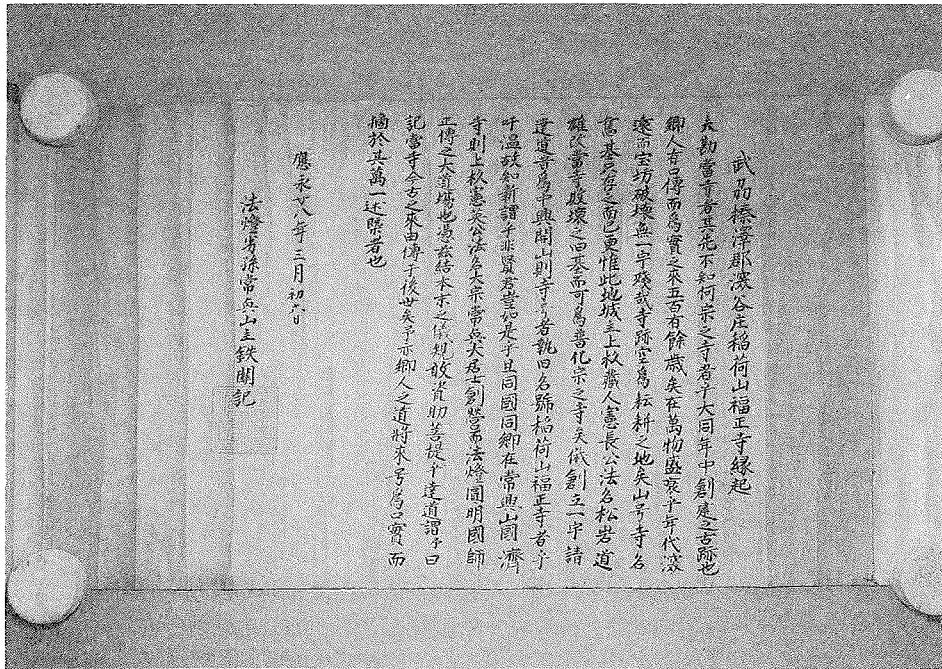 武刕榛澤郡深谷庄稲荷山福正寺縁起
夫勘當寺者其先不知何宗之寺者乎大同年中創處之古跡也
郷人有口傳而為實之來五百有餘歳矣在萬物盛衰乎年代深
遠而宝坊破壊無一宇残哉寺跡空為耘耕之地矣山号寺名
舊基只存之而已更惟此地城主上杦蔵人憲長公法名松岩道
雄改當寺破壊之旧基而可為善化宗之寺矣依創立一宇請
達道章為中興開山則寺号者執旧名號稲荷山福正寺者乎
吁温故知新謂乎非賢君豈如是乎且同國同郷在常興山國濟
寺則上杦憲英公法名大宗常興大居士創営而法燈圓明國師
正傳之大道場也憑茲結本末之儀規敬資助菩提乎達道謂予曰
記當寺今古之來由傳于後世矣予亦郷人之道將來号為口實而
摘於其萬一述槩者也
應永廿八年三月初六日
法燈劣孫常興山主鉄關記